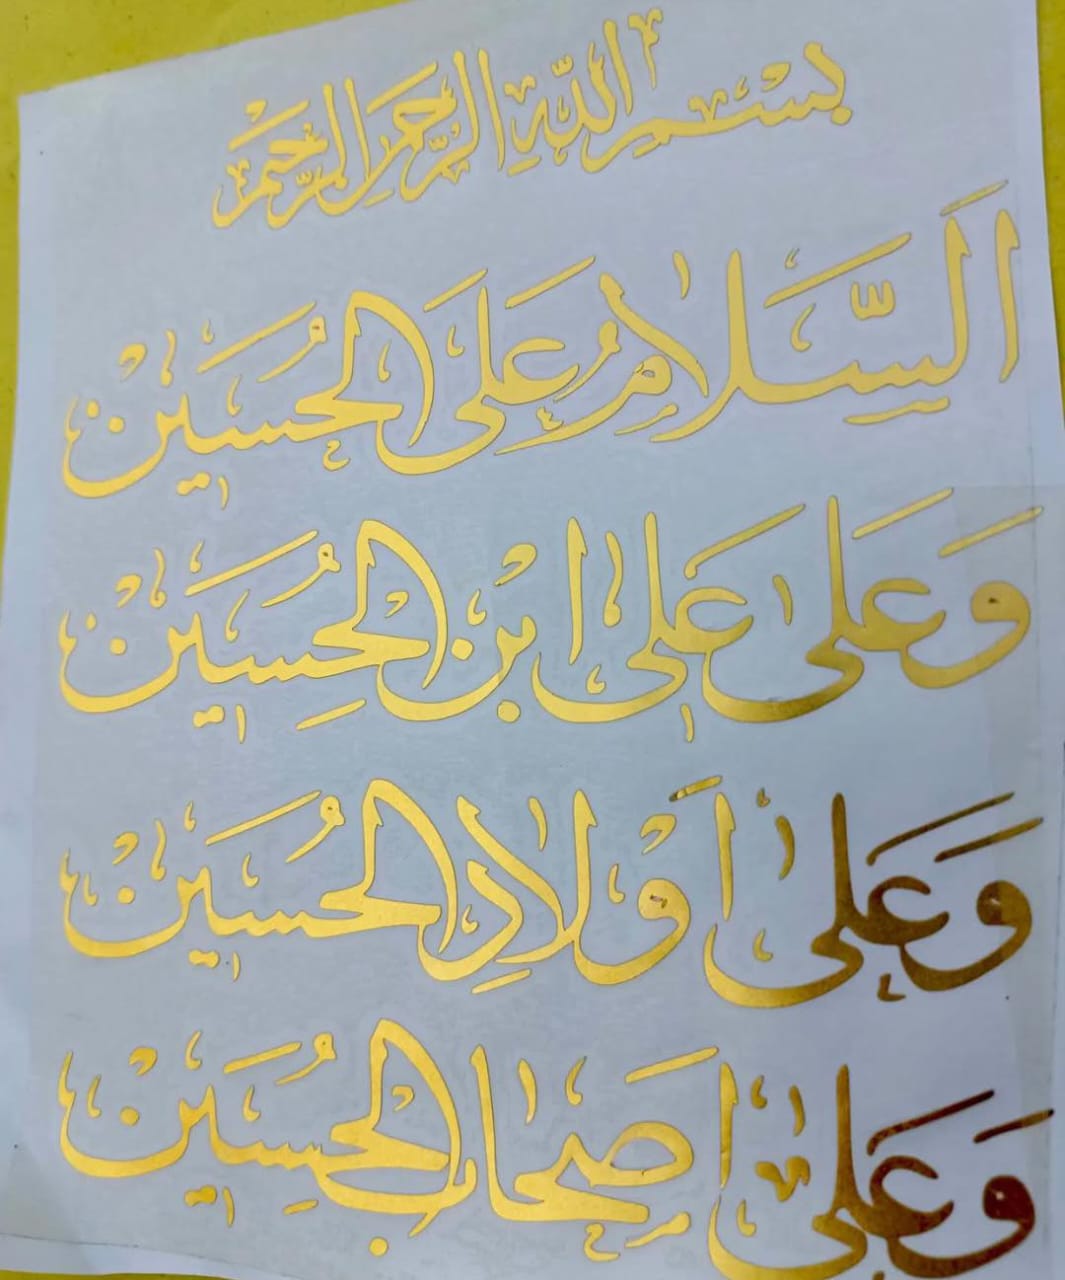 بِسْمِ اللّٰهِ الرَّحْمٰنِ الرَّحِيْمِ
اَلسَّلَامُ عَلَى الْحُسَيْنْ
وَعَلىٰ عَلىِ ابْنِ الْحُسَيْنْ
وَعَلىٰ اَوْلَادِ الْحُسَيْنْ
وَعَلىٰ اَصْحَابِ الْحُسَيْنْ